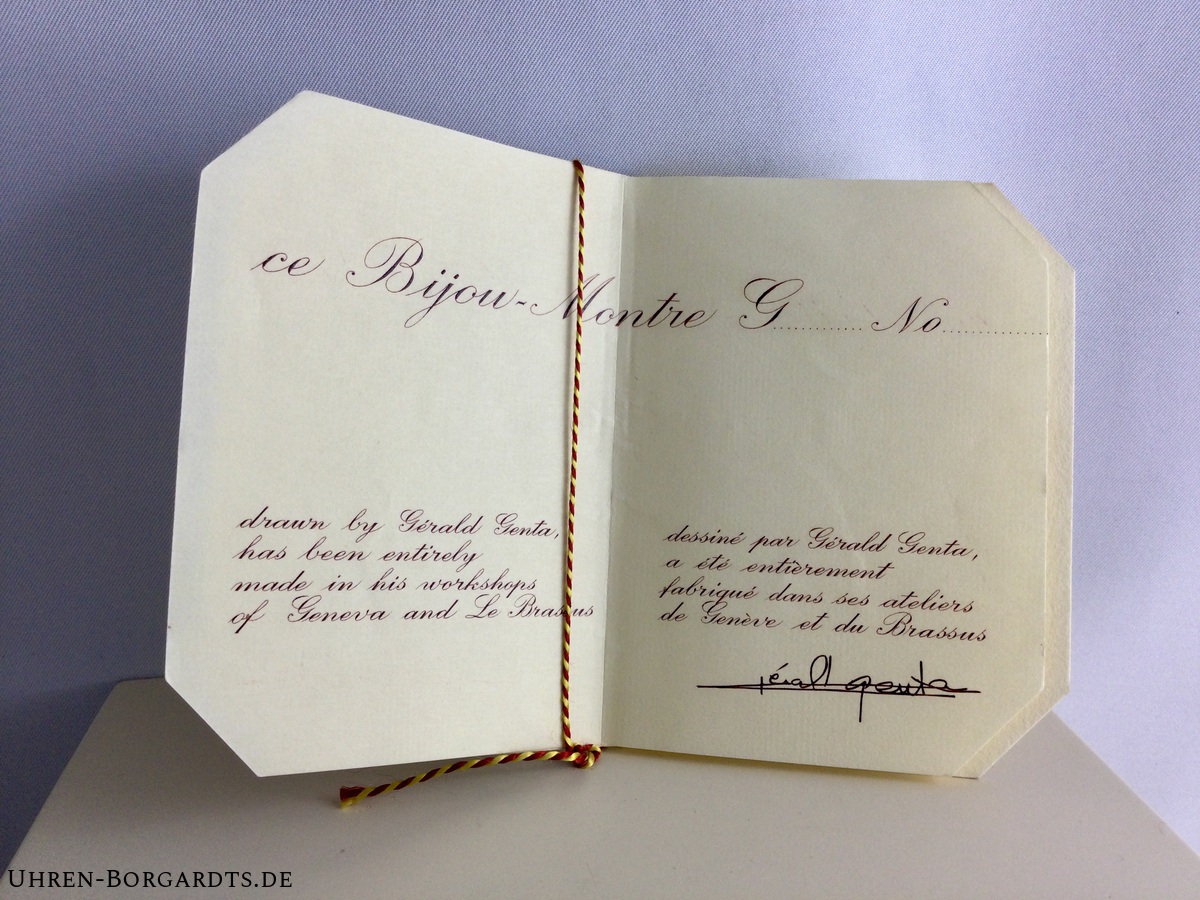 ce Bijou-Montre G.......... No............
drawn by Gérald Genta,
has been entirely
made in his workshops
of Geneva and Le Brassus
dessiné par Gérald Genta,
a été entièrement
fabriqué dans ses ateliers
de Genève et du Brassus
gérald genta
UHREN-BORGARDTS.DE